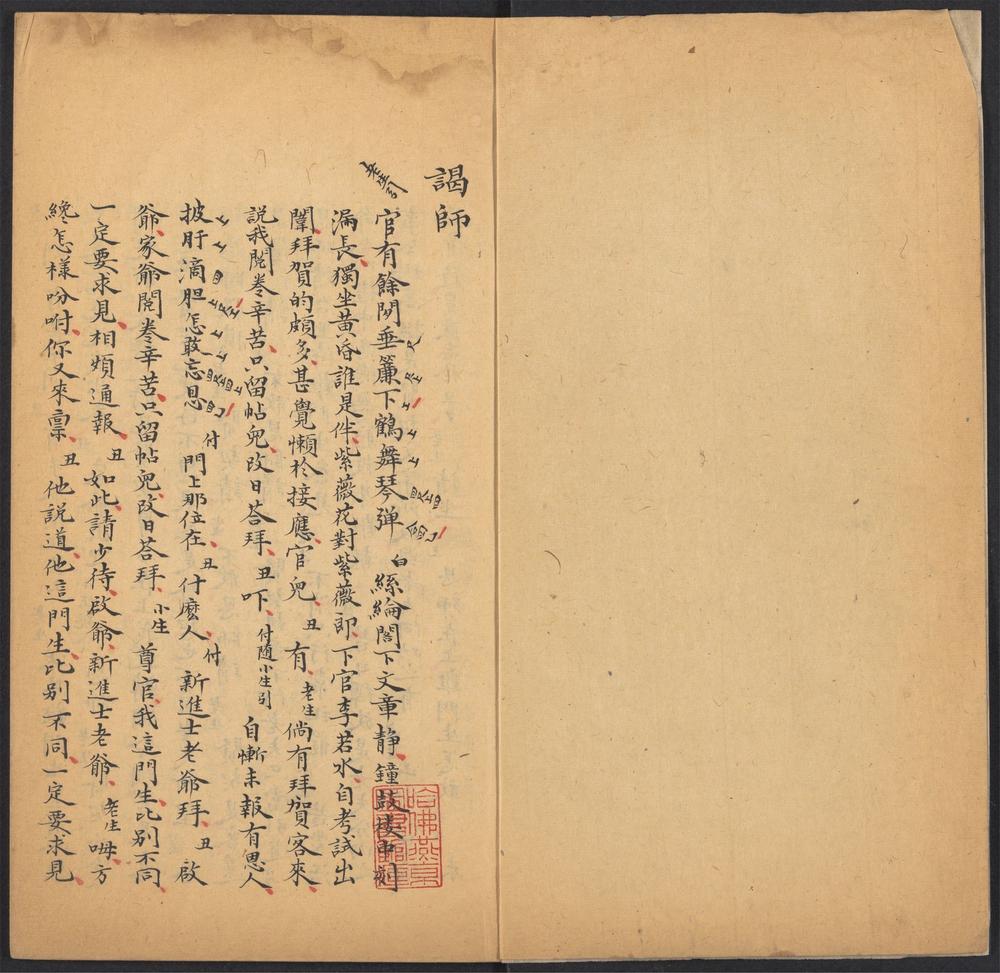 謁師
老生引
官有餘閒垂簾下鶴舞琴弹 白 絲綸閣下文章静鐘鼓楼中刻
漏長獨坐黃昏誰是伴紫薇花對紫薇郎下官李若水自考試出
闈拜賀的頗多甚覺懶於接應官兒 丑 有 老生 倘有拜賀客來
説我閱卷辛苦只留帖兒改日荅拜 丑 吓 付随小生引 自慚未報有恩人
披肝滴胆怎敢忘恩 付 門上那位在 丑 什麽人 付 新進士老爺拜 丑 啟
爺家爺閱卷辛苦只留帖兒改日荅拜 小生 尊官我這門生比别不同
一定要求見相煩通報 丑 如此請少待啟爺新進士老爺 老生 嗨方
纔怎樣吩咐你又來禀 丑 他説道他這門生比别不同一定要求見
哈佛燕京